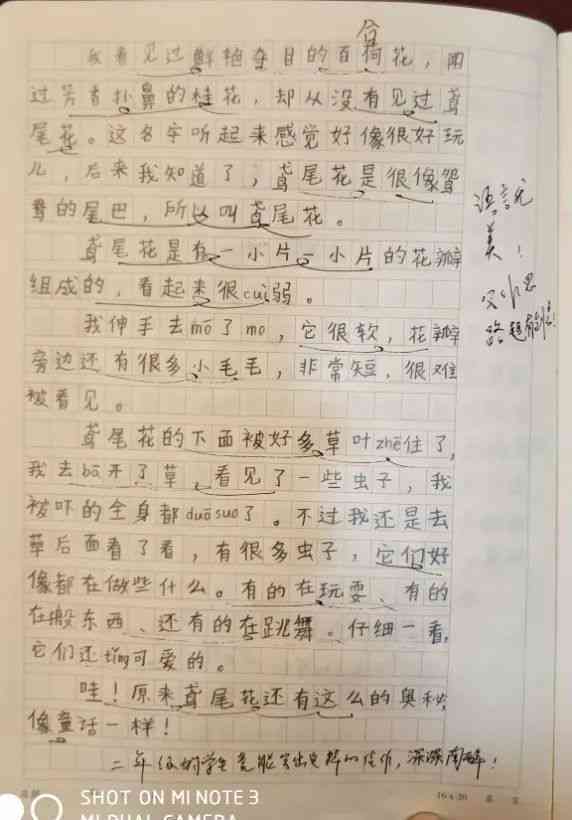 我看见过鲜艳夺目的百荷花，闻
合
过芳香扑鼻的桂花，却从没有见过鸢
尾花。这名字听起来感觉好像很好玩
儿，后来我知道了，鸢尾花是很像鸳
鸯的尾巴，所以叫鸢尾花。
鸢尾花是有一小片一小片的花瓣
组成的，看起来很cuì弱。
我伸手去mō了mo，它很软，花瓣
旁边还有很多小毛毛，非常短，很难
被看见。
鸢尾花的下面被好多草叶zhē住了，
我去bā开了草，看见了一些虫子，我
被吓的全身都duōsuo了。不过我还是去
草后面看了看，有很多虫子，它们好
像都在做些什么。有的在玩耍、有的
在搬东西、还有的在跳舞。仔细一看，
它们还tǐng可爱的。
哇！原来鸢尾花还有这么的奥秘，
像童话一样！
二年级的学生竟能写出这样的佳作，深深陶醉！
语言
美！
路
SHOT ON MI NOTE 3
MI DUAL CAMERA